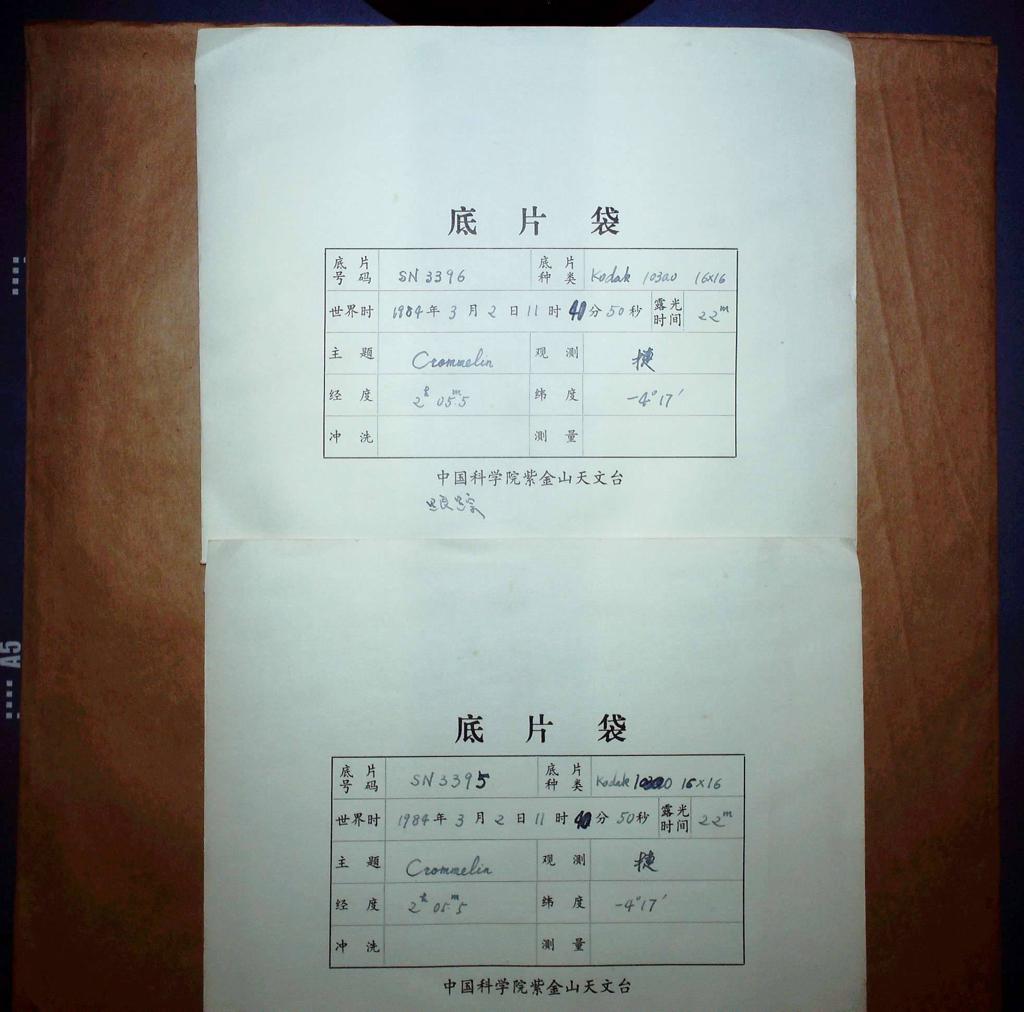 底 片 袋
底片号码 SN 3396 底片种类 Kodak 103a0 16×16
世界时 1984年 3月 2日 11时 40分 50秒 露光时间 22m
主 题 Crommelin 观 测 捷
经 度 2h 05m.5 纬 度 -4°17′
冲 洗 测 量
中国科学院紫金山天文台
跟踪
A5
底 片 袋
底片号码 SN 3395 底片种类 Kodak 103a0 16×16
世界时 1984年 3月 2日 11时 40分 50秒 露光时间 22m
主 题 Crommelin 观 测 捷
经 度 2h 05m.5 纬 度 -4°17′
冲 洗 测 量
中国科学院紫金山天文台